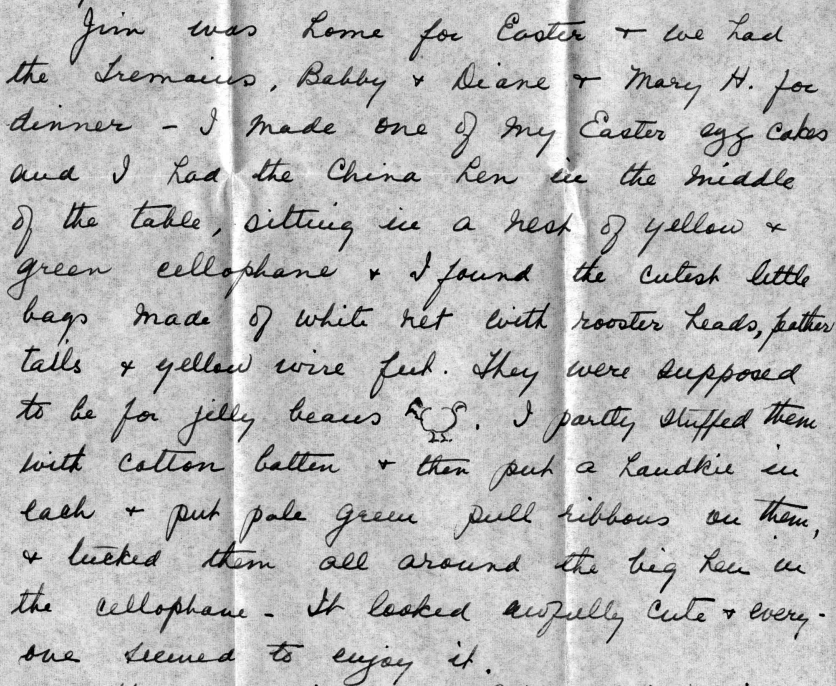 Jim was home for Easter + we had
the Tremains, Babby + Diane + Mary H. for
dinner - I made one of my Easter egg cakes
and I had the China hen in the middle
of the table, sitting in a nest of yellow +
green cellophane + I found the cutest little
bags made of white net with rooster heads, feather
tails + yellow wire feet. They were supposed
to be for jelly beans . I partly stuffed them
with cotton batten + then put a handkie in
each + put pale green pull ribbons on them,
+ tucked them all around the big hen in
the cellophane - It looked awfully cute + every-
one seemed to enjoy it.